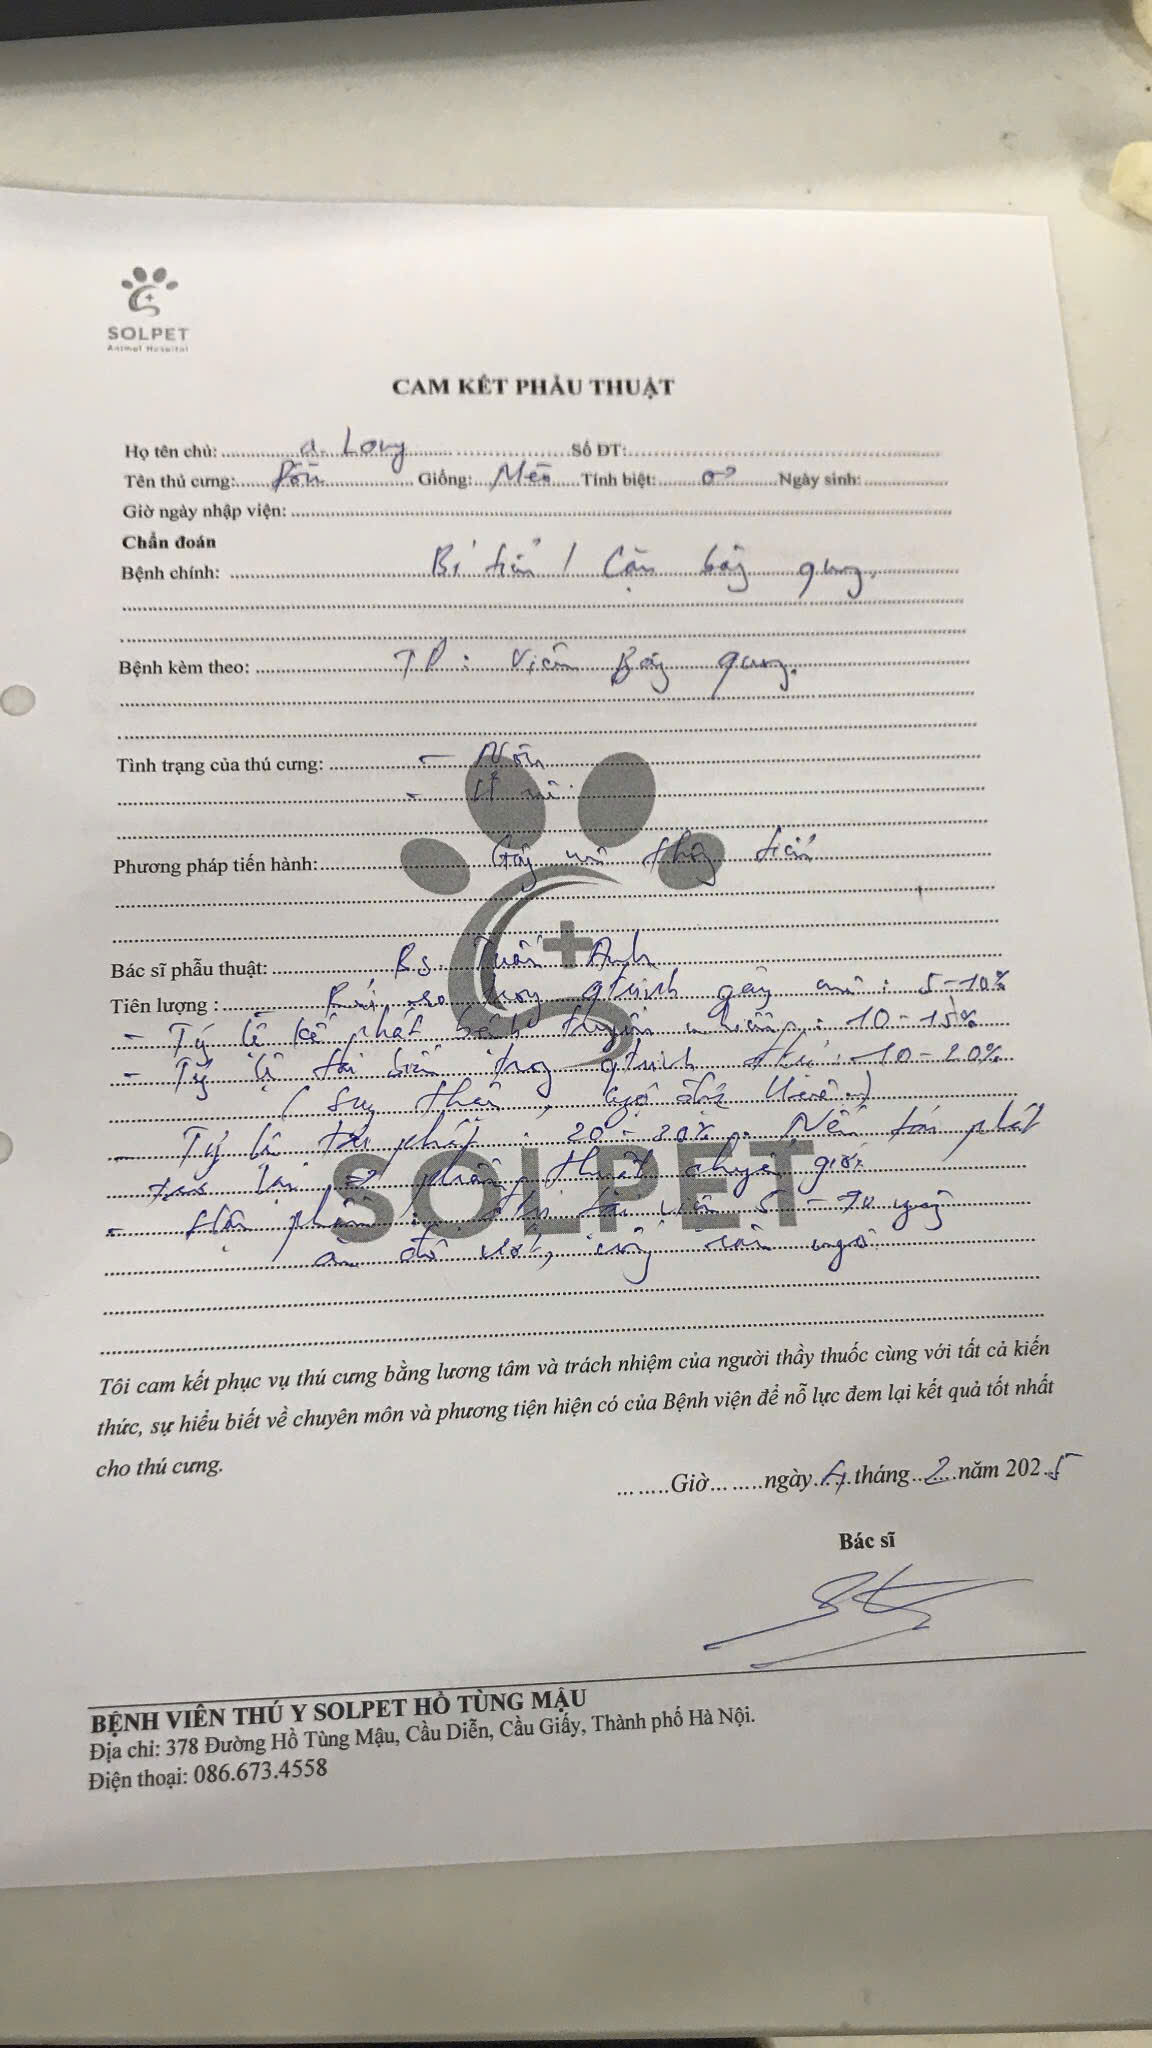 SOLPET
Animal Hospital
CAM KẾT PHẪU THUẬT
Họ tên chủ: a. Long Số ĐT:
Tên thú cưng: Giống: Mèo Tính biệt: ♂ Ngày sinh:
Giờ ngày nhập viện:
Chẩn đoán
Bệnh chính: Bí tiểu / Cặn bàng quang.
Bệnh kèm theo: TD: Viêm Bàng quang.
Tình trạng của thú cưng: - Nôn
- Ủ rũ.
Phương pháp tiến hành: Gây mê thông tiểu
Bác sĩ phẫu thuật: Bs. Tuấn Anh
Tiên lượng: Rủi ro trong qtrình gây mê: 5-10%
- Tỷ lệ kế phát bệnh truyền nhiễm: 10-15%
- Tỷ lệ tai biến trong qtrình đtrị: 10-20%
(Suy thận, ngộ độc Urê)
- Tỷ lệ tái phát: 20-30%. Nếu tái phát
lại phẫu thuật chuyển giới.
- Hậu phẫu: đtrị tại viện 5-10 ngày
ăn đồ ướt, uống
SOLPET
Tôi cam kết phục vụ thú cưng bằng lương tâm và trách nhiệm của người thầy thuốc cùng với tất cả kiến
thức, sự hiểu biết về chuyên môn và phương tiện hiện có của Bệnh viện để nỗ lực đem lại kết quả tốt nhất
cho thú cưng.
........Giờ........ngày 4 tháng 2 năm 2025
Bác sĩ
BỆNH VIÊN THÚ Y SOLPET HỒ TÙNG MẬU
Địa chỉ: 378 Đường Hồ Tùng Mậu, Cầu Diễn, Cầu Giấy, Thành phố Hà Nội.
Điện thoại: 086.673.4558